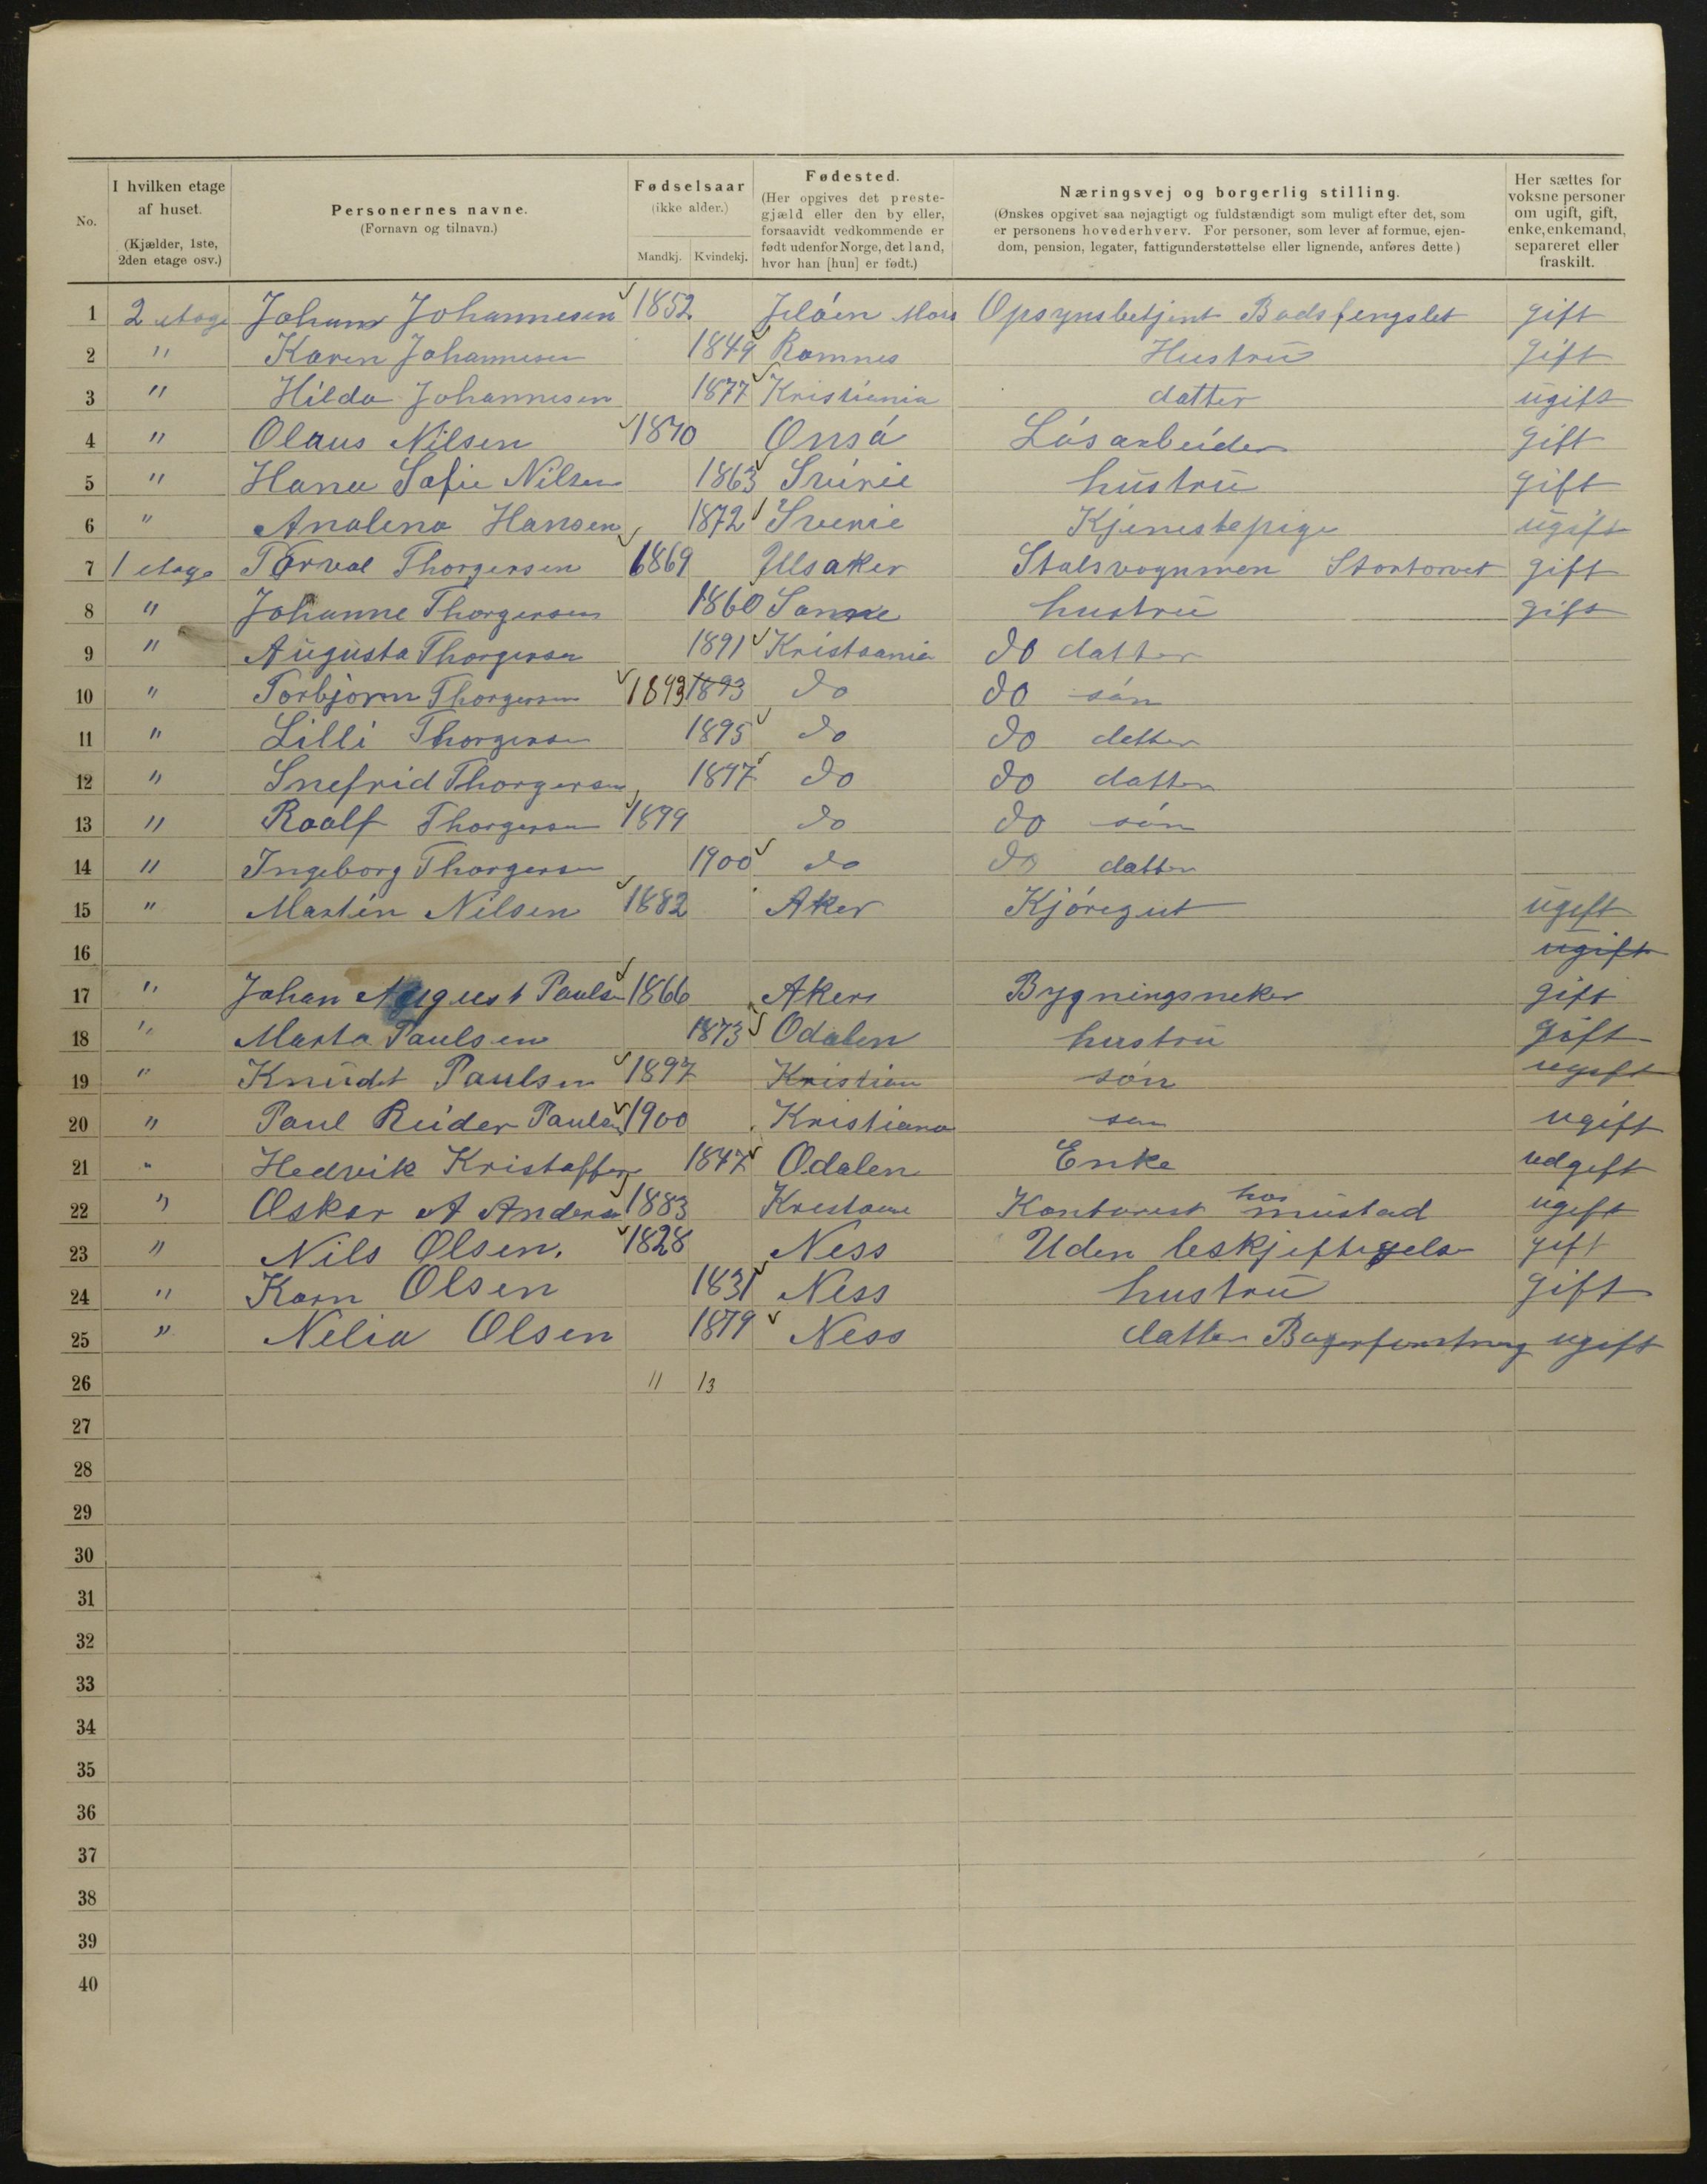 No.
I hvilken etage af huset.
(Kjælder, 1ste, 2den etage osv.)
Personernes navne.
(Fornavn og tilnavn.)
Fødselsaar
(ikke alder.)
Mandkj. Kvindekj.
Fødested.
(Her opgives det prestegjæld eller den by eller, forsaavidt vedkommende er født udenfor Norge, det land, hvor han [hun] er født.)
Næringsvej og borgerlig stilling.
(Ønskes opgivet saa nøjagtigt og fuldstændigt som muligt efter det, som er personens hovederhverv. For personer, som lever af formue, ejendom, pension, legater, fattigunderstøttelse eller lignende, anføres dette)
Her sættes for voksne personer om ugift, gift, enke, enkemand, separeret eller fraskilt.
1 2 etage Johan Johannesen 1852 Jeløen Mos Opsynsbetjent Bodsfengslet gift
2 " Karen Johannesen 1849 Ramnes Hustru gift
3 " Hilda Johannesen 1877 Kristiania datter ugift
4 " Olaus Nilsen 1870 Onsø Løsarbeider gift
5 " Hana Sofie Nilsen 1863 hustru gift
6 " Analena Hansen 1872 Kjenestepige ugift
7 1 etage Torval Thorgersen 1869 Ullsaker Stalsvognmen Stortorvet gift
8 " Johanne Thorgersen 1860 Sanne hustru gift
9 " Augusta Thorgersen 1891 Kristaania do datter
10 " Torbjorn Thorgersen 1893 1893 do do søn
11 " Lilli Thorgersen 1895 do do detter
12 " Snefrid Thorgersen 1897 do do datter
13 " Roalf Thorgersen 1899 do do søn
14 " Ingeborg Thorgersen 1900 do do datter
15 " Martin Nilsen 1882 Aker Kjøregut ugift
16 ugift
17 " Johan August Paulsen 1866 Akers Bygningsneker gift
18 " Marta Paulsen 1873 Odalen hustru gift
19 " Knudt Paulsen 1897 Kristian søn ugift
20 " Paul Reider Paulsen 1900 Kristiana søn ugift
21 " Hedvik Kristoffers 1847 Odalen Enke udgift
22 " Oskar A Anders 1883 Kontorist hos mustad ugift
23 " Nils Olsen. 1828 Ness Uden beskjeftigelse gift
24 " Karn Olsen 1831 Ness hustru gift
25 " Nelia Olsen 1879 Ness datter ugift
26 11 13
27
28
29
30
31
32
33
34
35
36
37
38
39
40